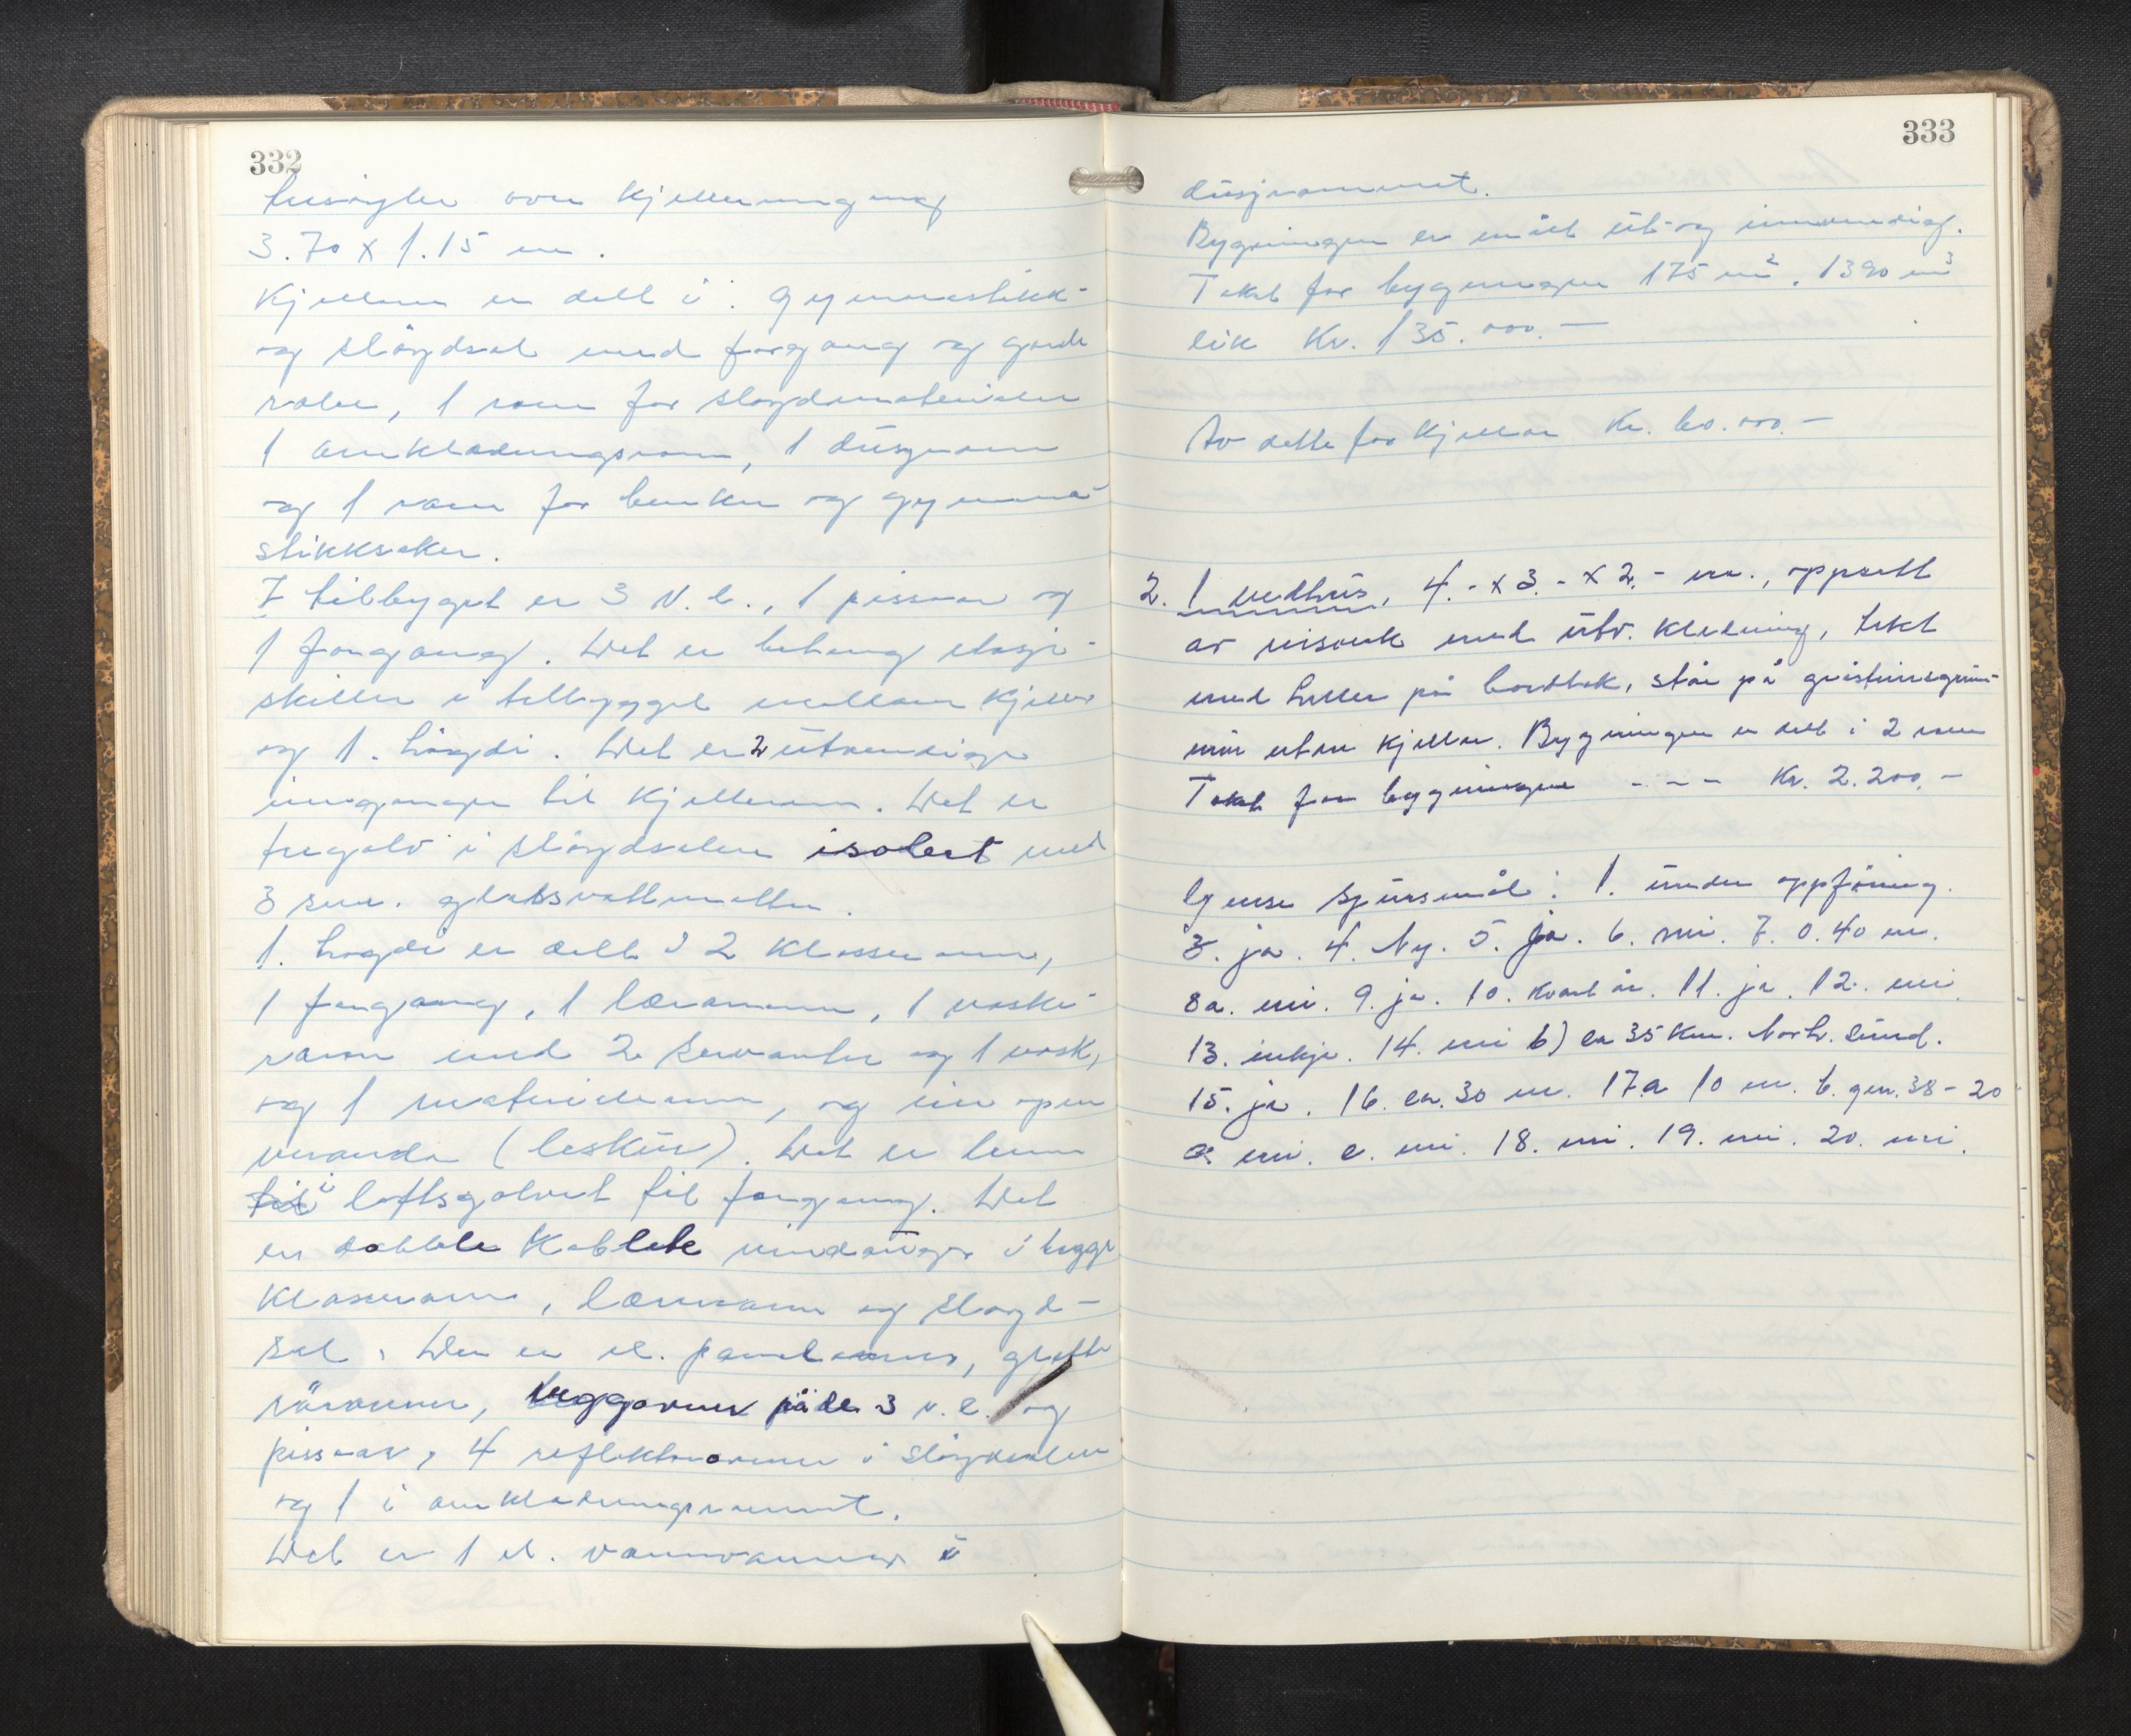 332
tresøyler over kjellerinngang
3.70 x 1.15 m.
Kjelleren er delt i: gymnastikk-
og sløydsal med forgang og garde
robe, 1 rom for sløydmaterialer
1 omkledningsrom, 1 dusjrom
og 1 rom for benker og gymna-
stikksaker.
I tilbygget er 3 V.C., 1 pissoar og
1 forgang. Det er betong etasje-
skiller i tilbygget mellom kjeller
og 1. høgdi. Det er 2 utvendige
innganger til kjelleren. Det er
tregolv i sløydsalen isolert med
3 sm. glassvattmatter.
1. høgdi er delt i 2 klasserom,
1 forgang, 1 lærerrom, 1 vaske-
rom med 2 servanter og 1 vask,
og 1 materialrom, og ein open
veranda (leskur). Det er lem
i loftsgolvet til forgang. Det
er dobble koblete vindauger i begge
klasserom, lærerrom og sløyd-
sal. Der er el. panelovner, glatte
rørovner, veggovner på de 3 v.c. og
pissoar, 4 reflektorovner i sløydsalen
og 1 i omkledningsrommet.
Det er 1 el. vannvarmer i
333
dusjrommet.
Bygningen er målt ut- og innvendig.
Takst for bygningen 175 m², 1390 m³
lik Kr. 135.000.—
Av dette for kjellar Kr. 60.000.—
2. 1 vedhus, 4.- x 3.- x 2.- m., oppsett
av reisverk med utv. kledning, tekt
med heller på bordtak, står på gråsteinsgrun-
mur uten kjeller. Bygningen er delt i 2 rom
Takst for bygningen - - - Kr. 2.200.-
Ymse spursmål: 1. under oppføring.
3. ja. 4. Ny. 5. ja. 6. nei. 7. 0.40 m.
8a. nei. 9. ja. 10. kvart år. 11. ja. 12. nei.
13. inkje. 14. nei b) ca 35 km. Norh.sund.
15. ja. 16. ca. 30 m. 17.a 10 m. b. gnr. 38-20
d. nei. e. nei. 18. nei. 19. nei. 20. nei.